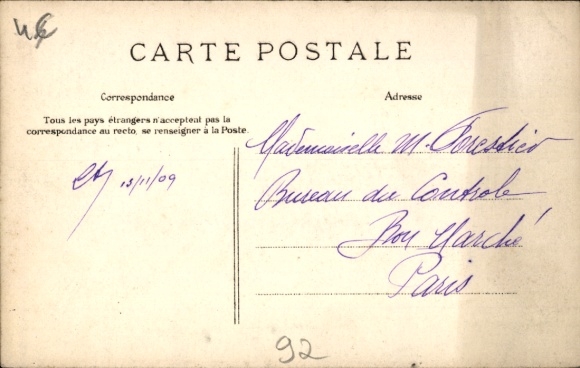 CARTE POSTALE
Correspondance
Adresse
Tous les pays étrangers n'acceptent pas la
correspondance au recto, se renseigner à la Poste.
Mademoiselle M.
Bureau du Controle
Bon Marché
Paris
13/11/09
92